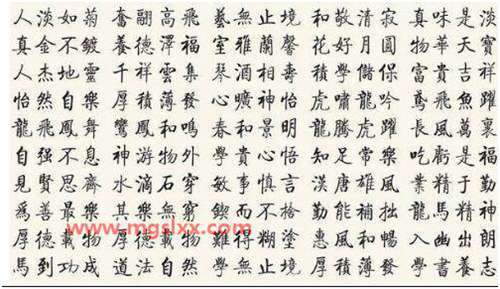 人淡如菊奮翮高飛藝無止境和敬清寂真味是淡
真金不鍍養德澤福室雅蘭馨花好月圓物華天寶
人杰地靈千祥雲集琴酒相壽積學儲保富貴吉祥
怡然自樂厚積薄發心曠神怡虎嘯龍吟鳶飛魚躍
龍飛鳳舞鸞鳳和鳴春和景明龍騰虎躍長風萬裏
自强不息神游物外學貴心悟知足常樂吃虧是福
見賢思齊水滴石穿敏事慎言漢唐雄風業精于勤
爲善最樂其樂無窮鍥而不捨勤能補拙龍馬精神
www.mgslxx.com
厚德載物厚德載福難得糊塗惠風和暢入幽出朗
馬到功成道法自然學無止境厚積薄發學書養志